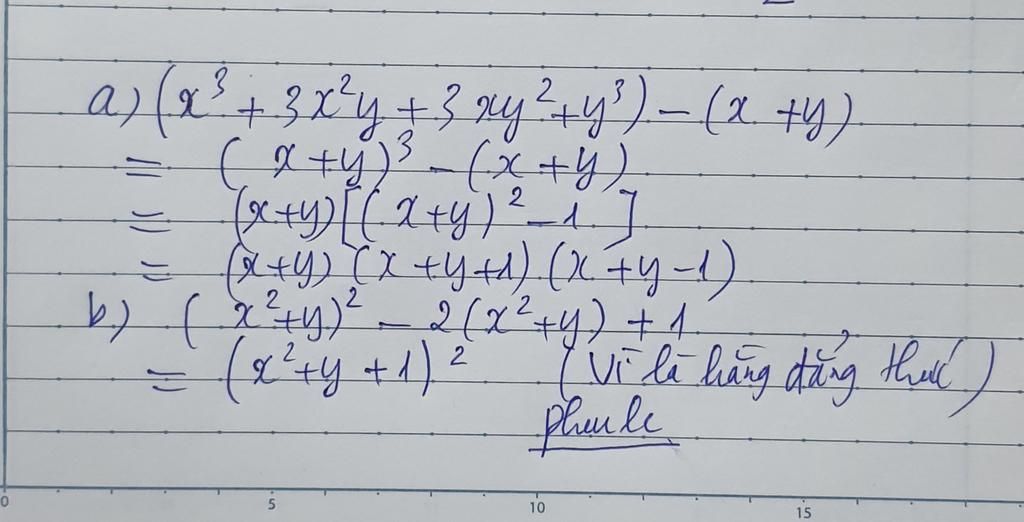 a) (x³ + 3x²y + 3xy² + y³) - (x + y)
= (x + y)³ - (x + y)
= (x+y)[(x+y)² - 1]
= (x+y)(x+y+1).(x+y-1)
b.) (x²+y)² - 2(x²+y) + 1
= (x²+y+1)² (Vì là hằng đẳng thức)
0 5 10 15